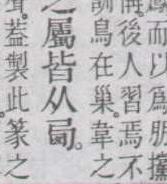 而以爲朋
後人習焉不
鳥在巢。韋之
之屬皆从
葢製此篆之